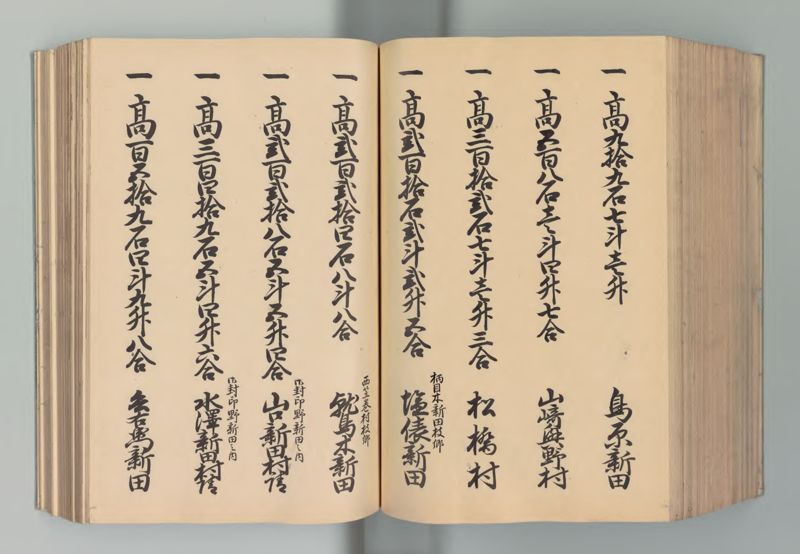 一 高九拾九石七斗壱升 島原新田
一 高五百八石壱斗四升七合 山崎興野村
一 高三百拾弐石七斗壱升三合 松橋村
柄目木新田枝郷
一 高弐百拾石弐斗弐升五合 塩俵新田
西笠巻村枝郷
一 高弐百弐拾四石八斗八合 鷲ノ木新田
御封印野新田之内
一 高弐百弐拾八石五斗五升四合 山口新田村
御封印野新田之内
一 高三百四拾九石五斗四升六合 水澤新田村
一 高一百五拾九石四斗九升八合 新田